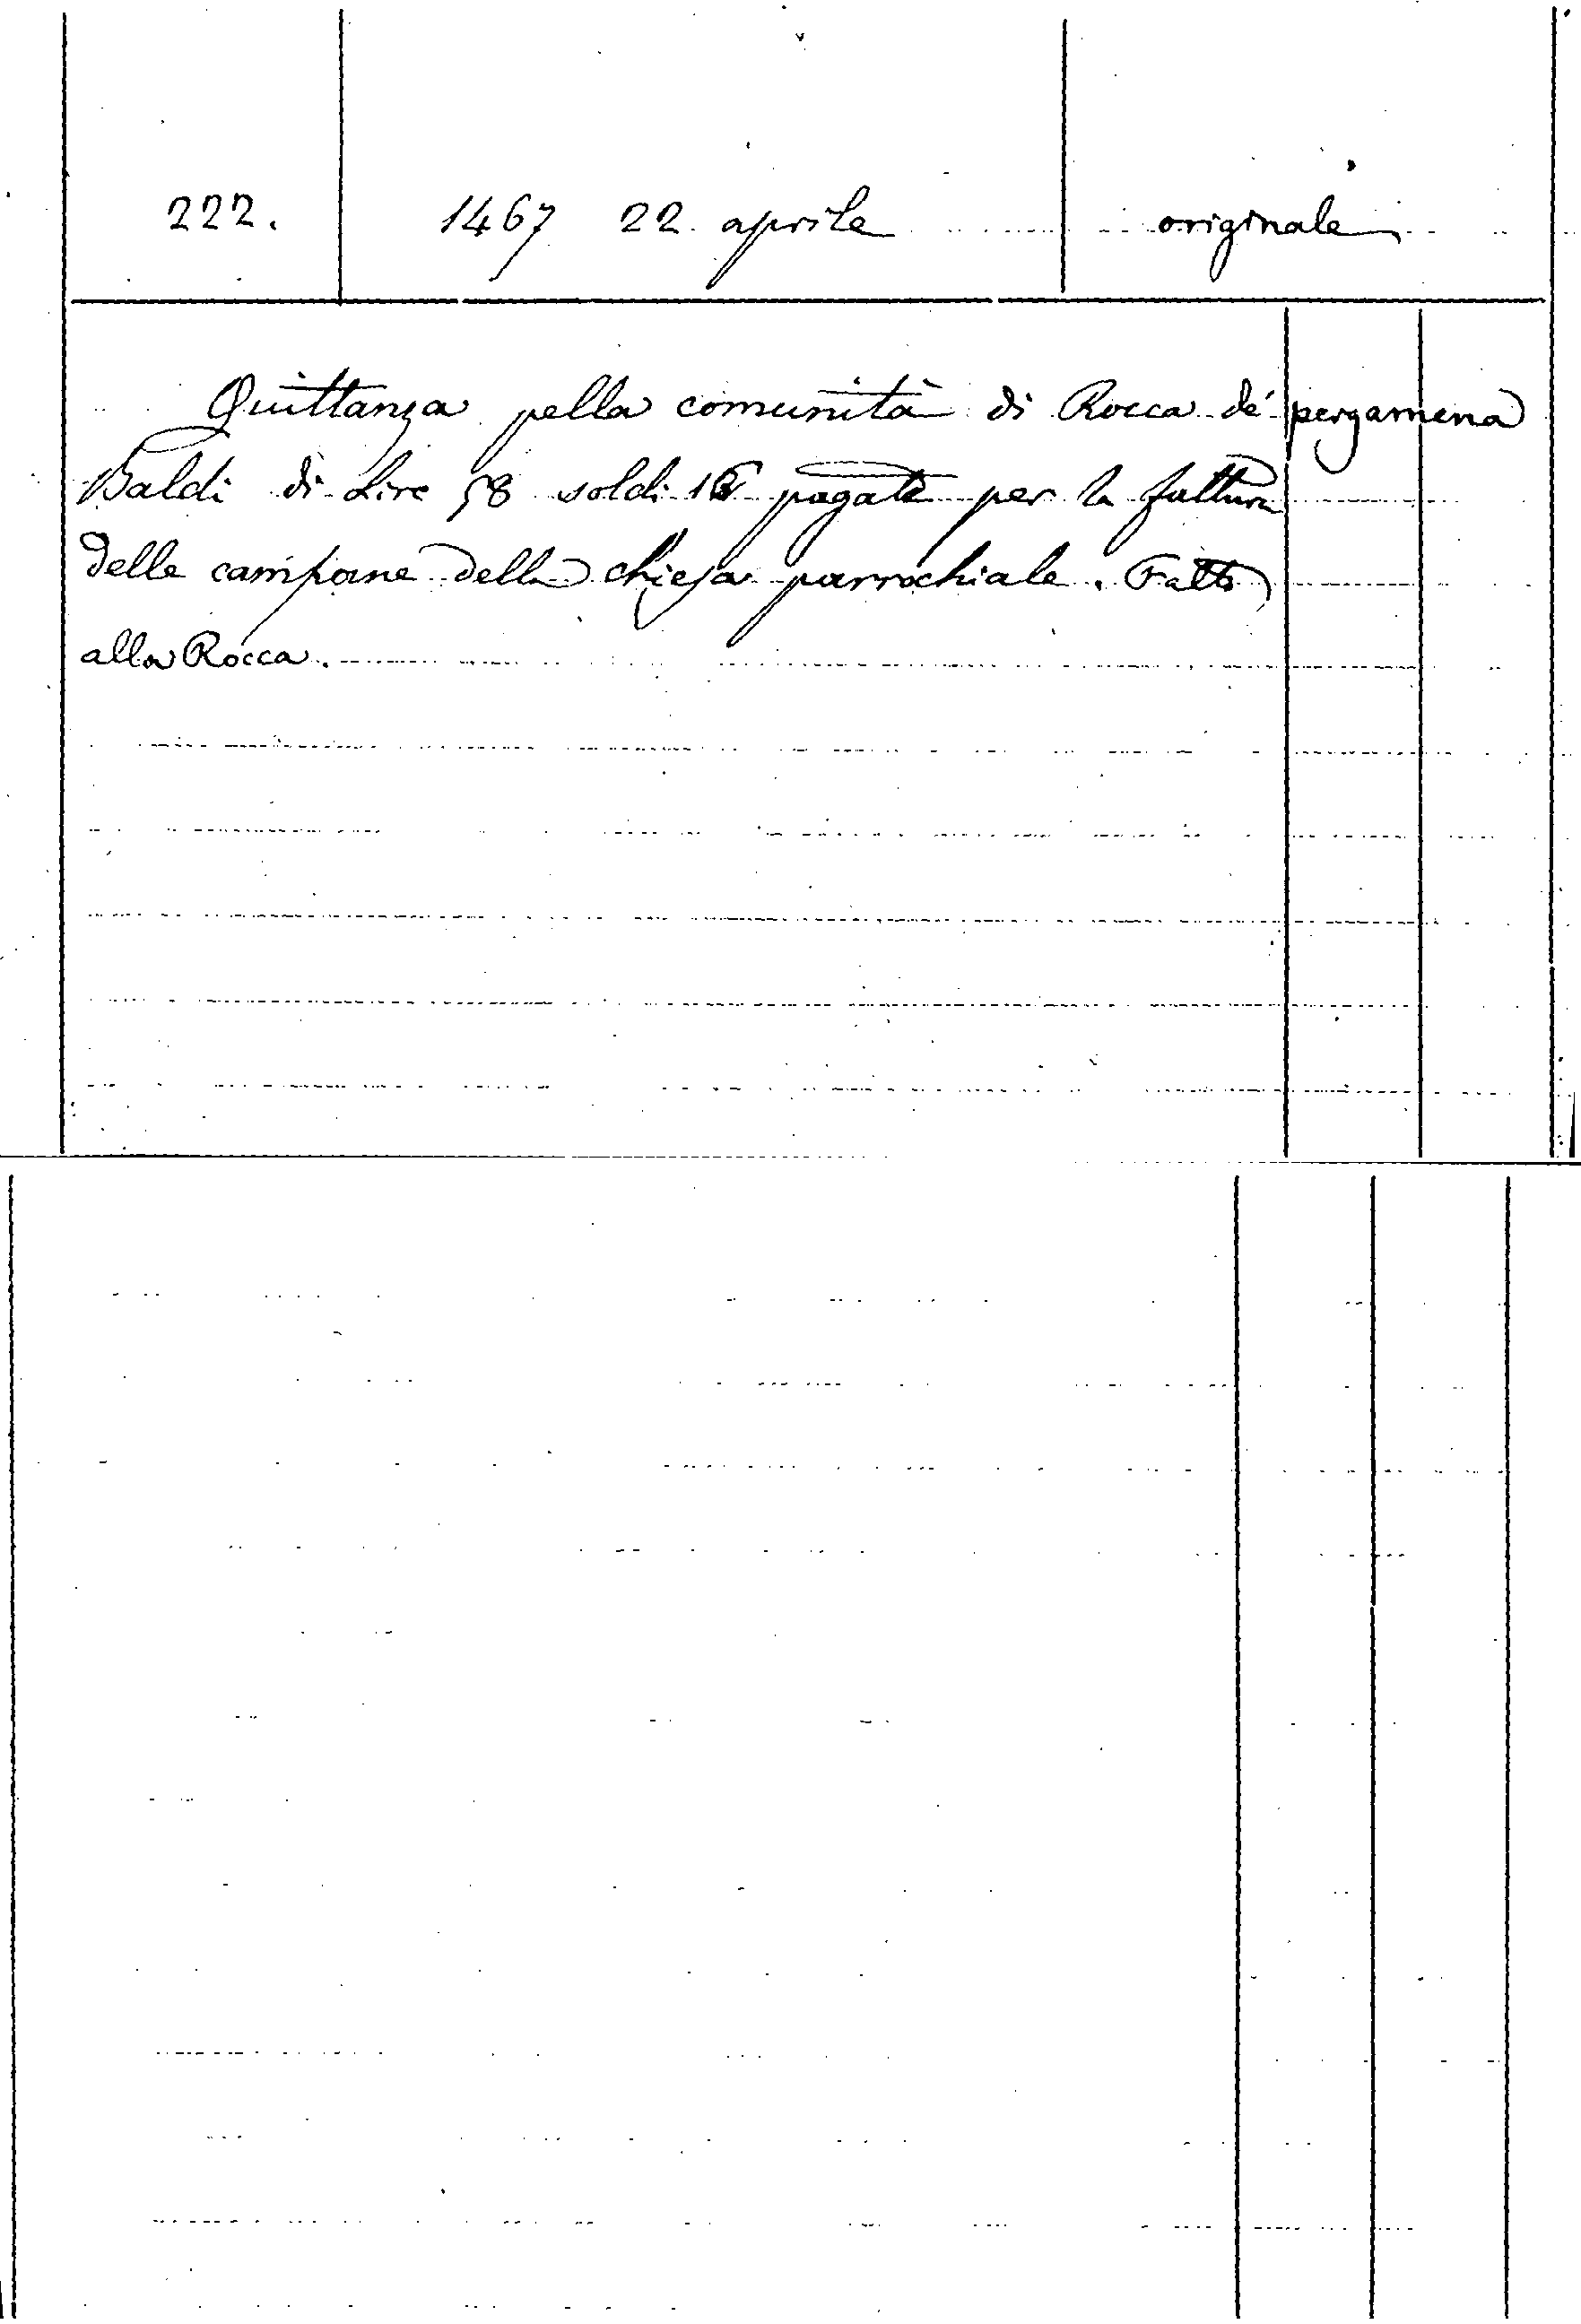 222. 1467 22 aprile originale
Quittanza pella comunità di Rocca de' pergamena
Baldi di Lire 58 soldi pagate per la fattura
delle campane della chiesa parrochiale. Fatto
alla Rocca.